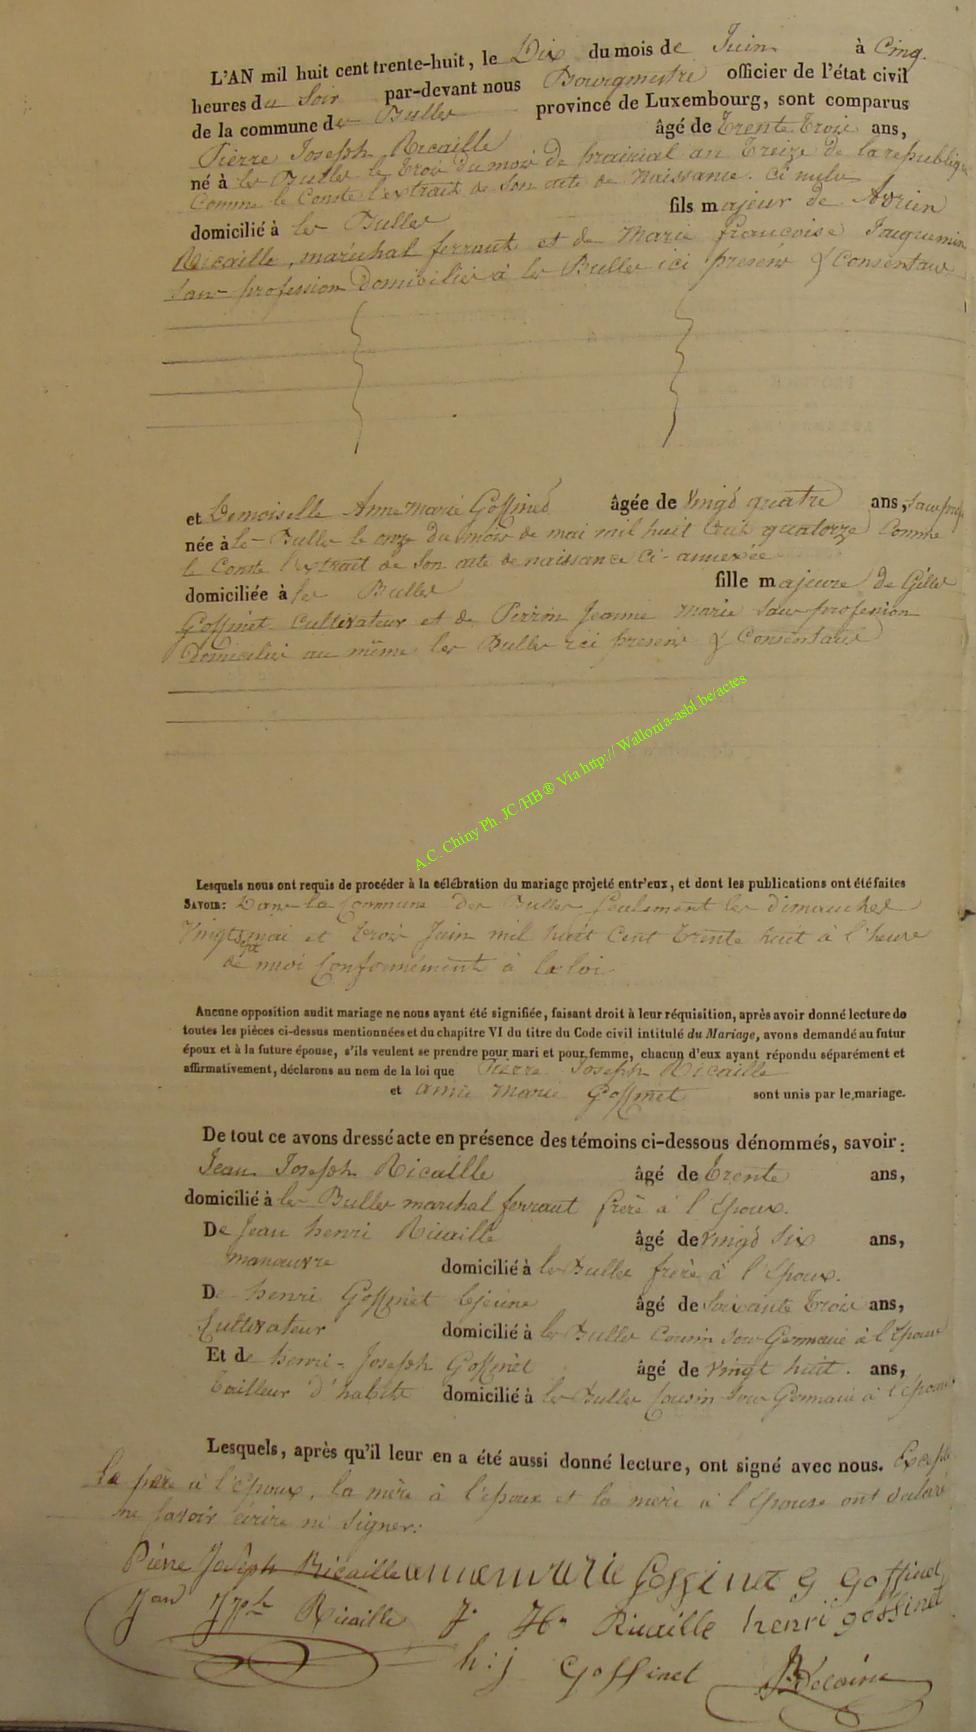 L'AN mil huit cent trente-huit, le Dix du mois de Juin à Cinq
heures du Soir par-devant nous Bourgmestre officier de l'état civil
de la commune de Bulles province de Luxembourg, sont comparus
Pierre Joseph Ricaille âgé de trente trois ans,
né à les Bulles le trois du mois de prairial an treize de la republique
Comme le Conste l'extrait de son acte de Naissance.
domicilié à les Bulles fils majeur de Adrien
Ricaille, maréchal ferrant et de Marie françoise Jacquemin
sans profession Domiciliés à les Bulles ici presens & Consentans
et Demoiselle Anne Marie Goffinet âgée de vingt quatre ans,
née à les Bulles le onze du mois de mai mil huit Cent quatorze Comme
le Conste l'extrait de Son acte de naissance Ci-annexée
domiciliée à les Bulles fille majeure de Gilles
Goffinet Cultivateur et de Pierrin Jeanne Marie Sans profession
Domiciliés au même les Bulles ici presens & Consentans
A.C. Chiny Ph. JC/HB® Via http://Wallonia-asbl.be/actes
Lesquels nous ont requis de procéder à la célébration du mariage projeté entr'eux, et dont les publications ont été faites
SAVOIR: Dans la Commune des Bulles Seulement les dimanches
Vingt sept mai et trois Juin mil huit Cent trente huit à l'heure
de midi Conformément à la loi
Aucune opposition audit mariage ne nous ayant été signifiée, faisant droit à leur réquisition, après avoir donné lecture de
toutes les pièces ci-dessus mentionnées et du chapitre VI du titre du Code civil intitulé du Mariage, avons demandé au futur
époux et à la future épouse, s'ils veulent se prendre pour mari et pour femme, chacun d'eux ayant répondu séparément et
affirmativement, déclarons au nom de la loi que Pierre Joseph Ricaille
et anne Marie Goffinet sont unis par le mariage.
De tout ce avons dressé acte en présence des témoins ci-dessous dénommés, savoir:
Jean Joseph Ricaille âgé de trente ans,
domicilié à les Bulles marchal ferrant frère à l'Epoux.
De Jean henri Ricaille âgé de vingt Six ans,
manœuvre domicilié à les Bulles frère à l'Epoux.
De henri Goffinet lejeune âgé de Soixante trois ans,
Cultivateur domicilié à les Bulles Cousin Sous Germain à l'Epouse
Et de henri-Joseph Goffinet âgé de vingt huit. ans,
tailleur d'habits domicilié à les Bulles Cousin Sous Germain à l'Epouse
Lesquels, après qu'il leur en a été aussi donné lecture, ont signé avec nous. Excepté
Le père à l'Epoux, la mère à l'epoux et la mère à l'Epouse ont déclaré
ne savoir écrire ni Signer:
Pierre Joseph Ricaille anne marie Goffinet G Goffinet
Jean Jph Ricaille J. H. Ricaille henri goffinet
h: j Goffinet